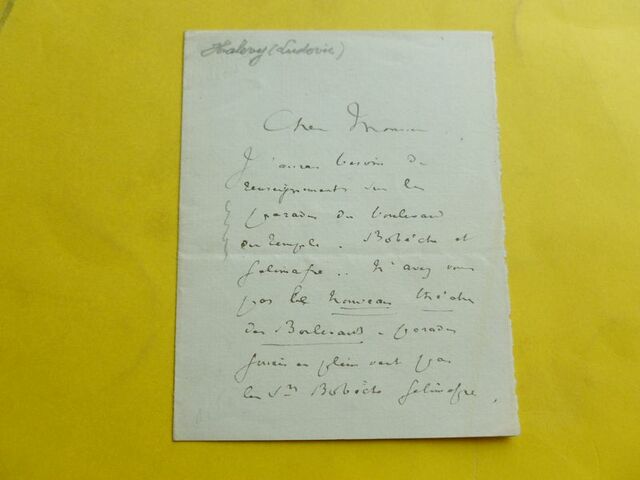 Halevy (Ludovic)
Cher Monsieur
J'aurais besoin de
renseignements sur les
parades du boulevard
du Temple. Bobèche et
Galimafre.. N'avez vous
pas le Nouveau théâtre
des Boulevards - parades
en plein vent par
les Srs Bobèche Galimafre,